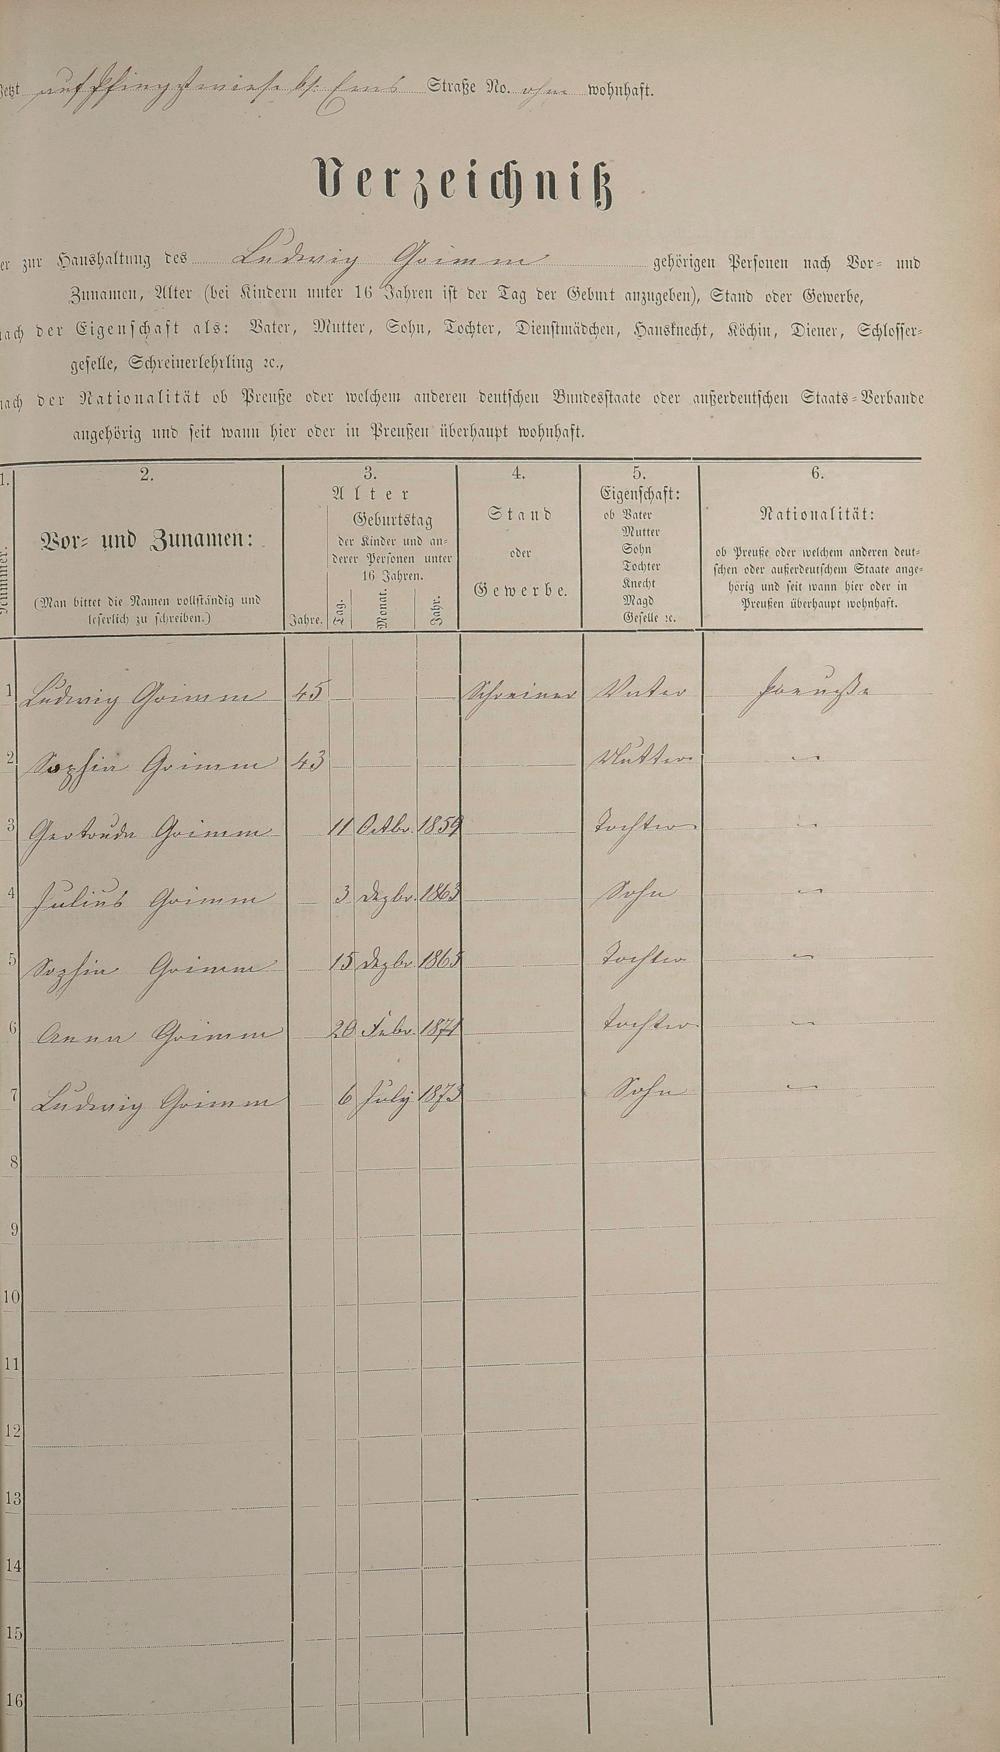 Jetzt auf Pfingstwiese bei Ems Straße No. ohne wohnhaft.
Verzeichniß
er zur Haushaltung des Ludwig Grimm gehörigen Personen nach Vor- und
Zunamen, Alter (bei Kindern unter 16 Jahren ist der Tag der Geburt anzugeben), Stand oder Gewerbe,
nach der Eigenschaft als: Vater, Mutter, Sohn, Tochter, Dienstmädchen, Hausknecht, Köchin, Diener, Schlosser-
geselle, Schreinerlehrling ꝛc.,
nach der Nationalität ob Preuße oder welchem anderen deutschen Bundesstaate oder außerdeutschen Staats-Verbande
angehörig und seit wann hier oder in Preußen überhaupt wohnhaft.
1.
Nummer.
2.
Vor- und Zunamen:
(Man bittet die Namen vollständig und
leserlich zu schreiben.)
3.
Alter
Jahre.
Geburtstag
der Kinder und an-
derer Personen unter
16 Jahren.
Tag. Monat. Jahr.
4.
Stand
oder
Gewerbe.
5.
Eigenschaft:
ob Vater
Mutter
Sohn
Tochter
Knecht
Magd
Geselle ꝛc.
6.
Nationalität:
ob Preuße oder welchem anderen deut-
schen oder außerdeutschem Staate ange-
hörig und seit wann hier oder in
Preußen überhaupt wohnhaft.
1 Ludwig Grimm 45 Schreiner Vater Preuße
2 Sophie Grimm 43 Mutter "
3 Gertrude Grimm 11 Octbr. 1859 Tochter "
4 Julius Grimm 3 Dezbr. 1863 Sohn "
5 Sophie Grimm 15 Dezbr. 1865 Tochter "
6 Anna Grimm 20 Febr. 1871 Tochter "
7 Ludwig Grimm 6 July 1873 Sohn "
8
9
10
11
12
13
14
15
16